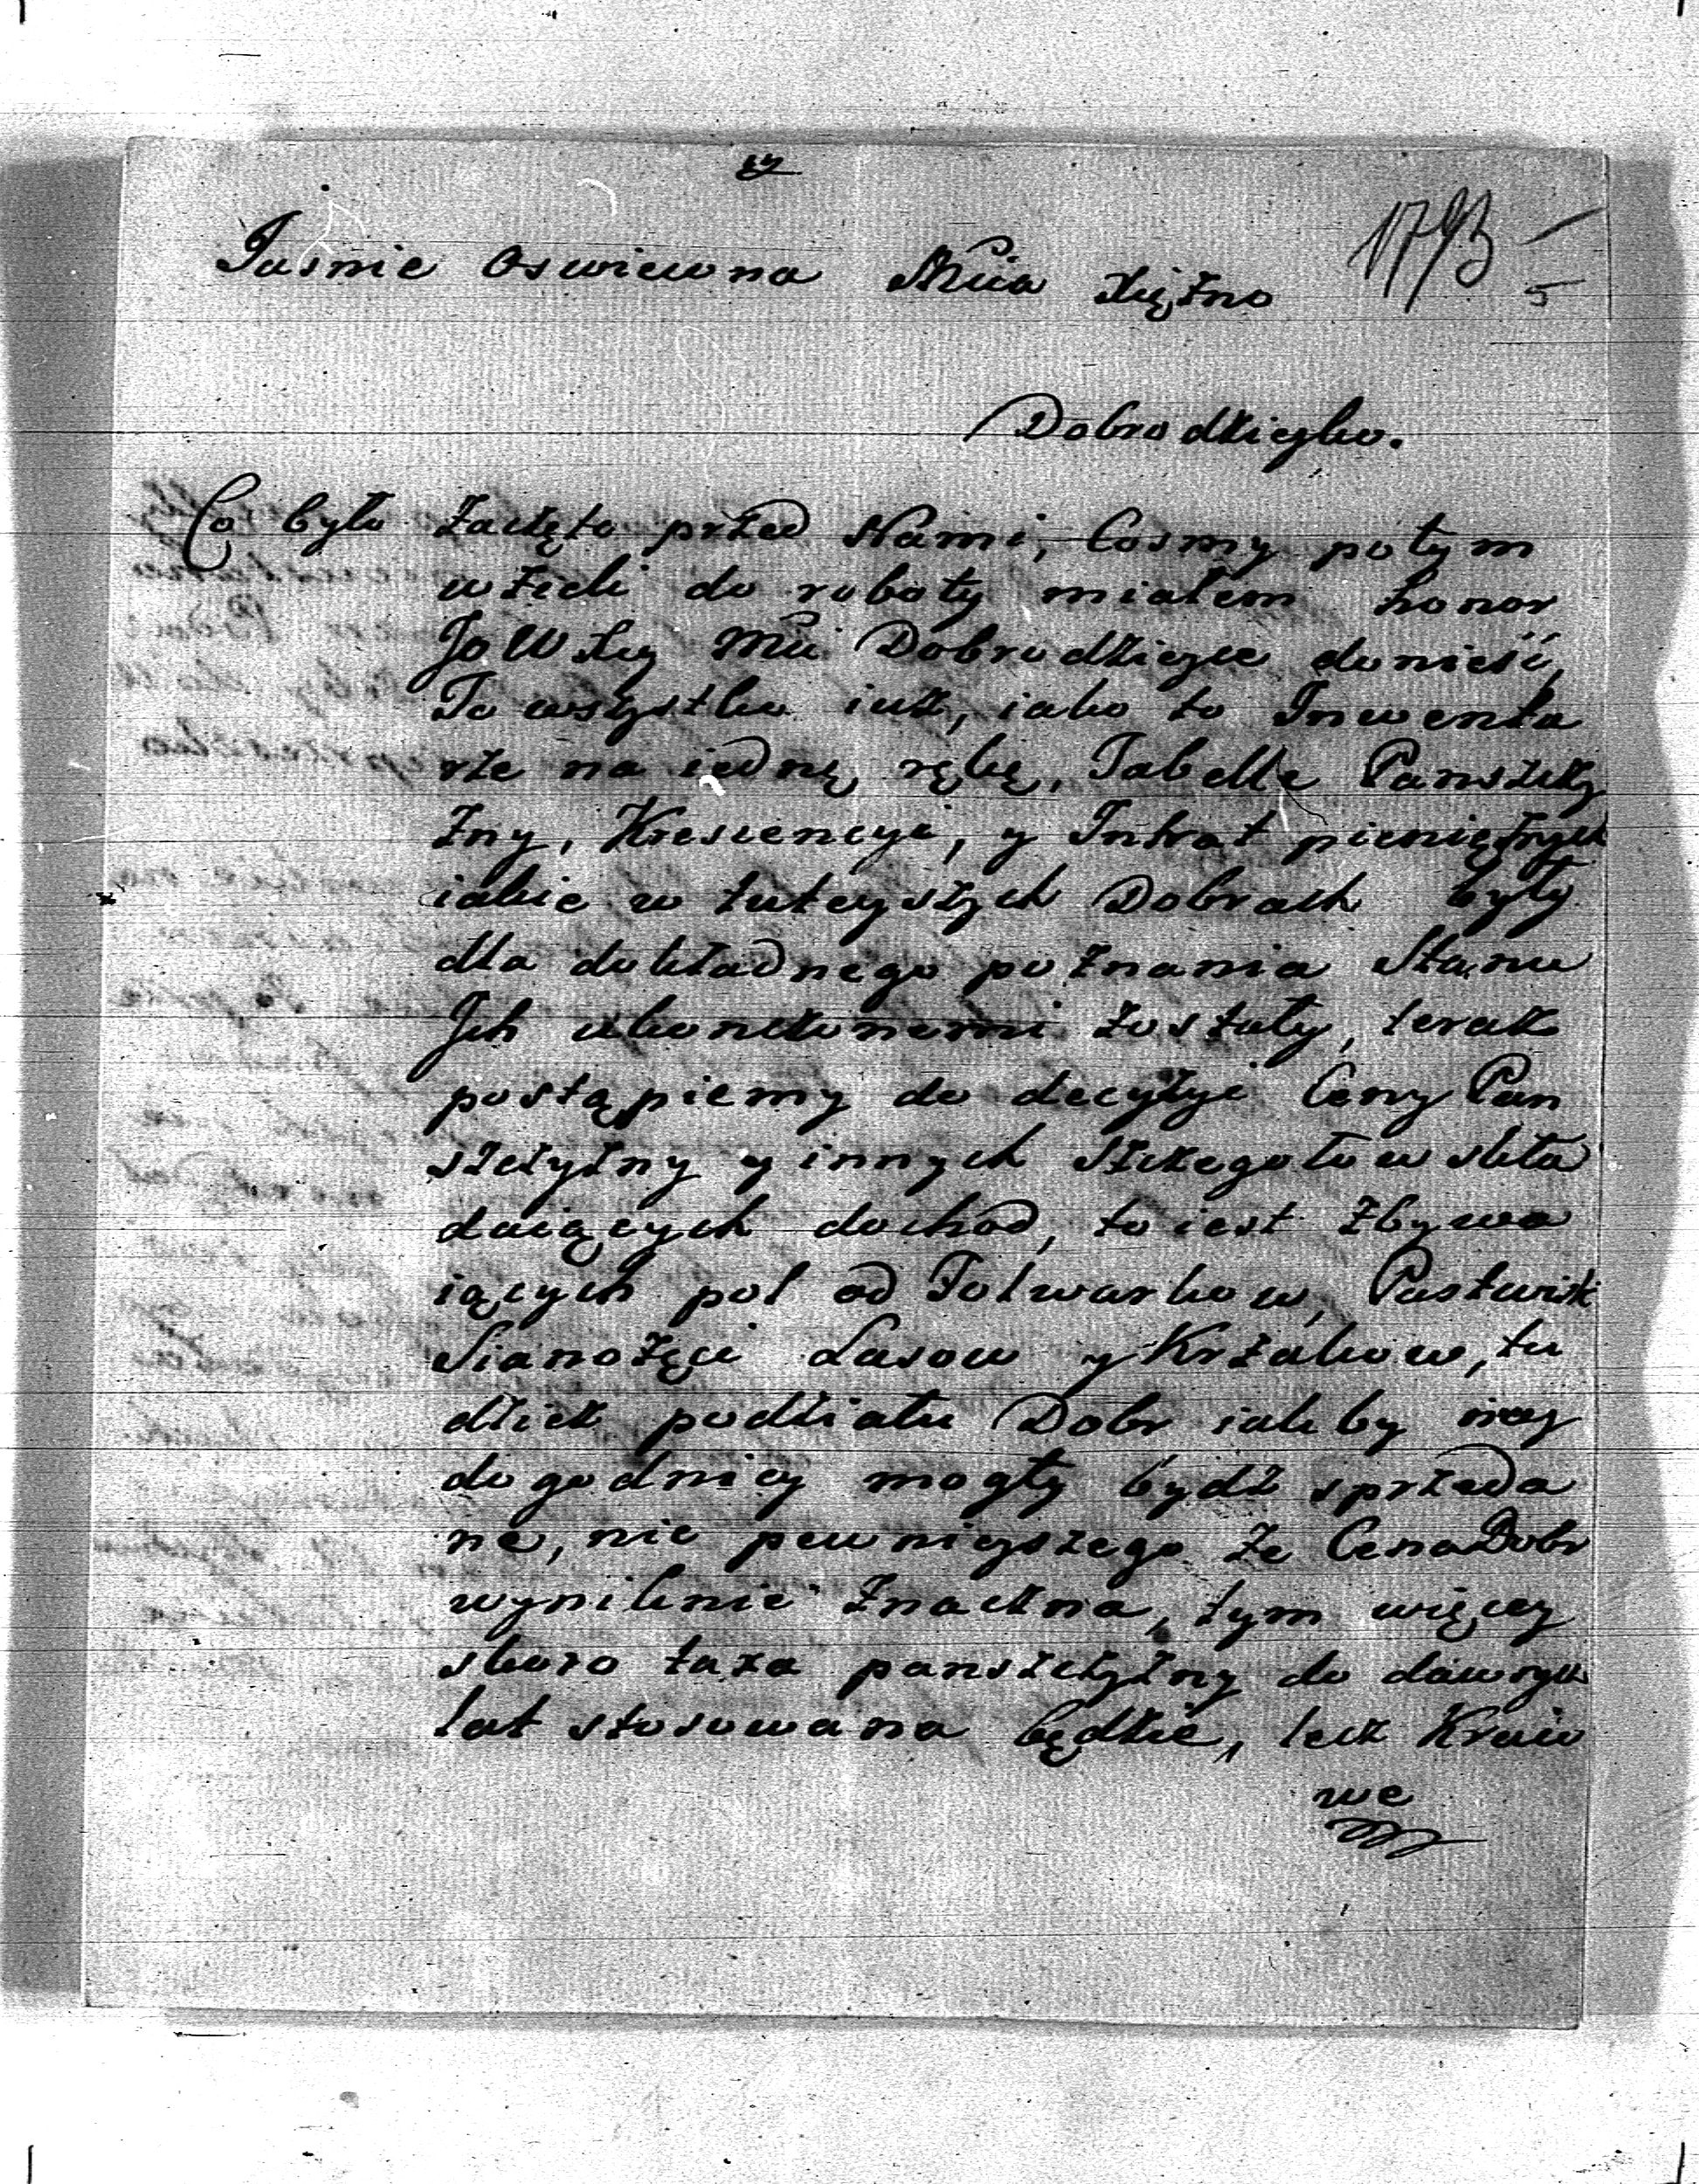 1793
5
Jasnie Oswiecona Mcia Xiężno
Dobrodzieyko.
Co było zaczęto przed Nami, Cosmy potym
wzieli do roboty miałem honor
JoWXcy Mci Dobrodzieyce donieść,
To wszystko iuż, iako to Inwenta
rze na iedną rękę, Tabelle Panszczy
zny, Krescencyi, y Intrat pieniężnych
iakie w tuteyszych Dobrach były
dla dokładnego poznania Stanu
Jch ukonczonemi zostały, teraz
postąpiemy do decyzyi Ceny Pan
szczyzny y innych szczegołow skła
daiących dochod, to iest zbywa
iących pol od Folwarkow, Pastwisk
Sianożęci Lasow y Krzakow, tu
dzież podziału Dobr iakby nay
dogodniey mogły bydź sprzeda
ne, nic pewnieyszego że Cena Dobr
wyniknie znaczna, tym więcey
skoro taxa panszczyzny do dawnych
lat stosowana będzie, lecz Kraio
we